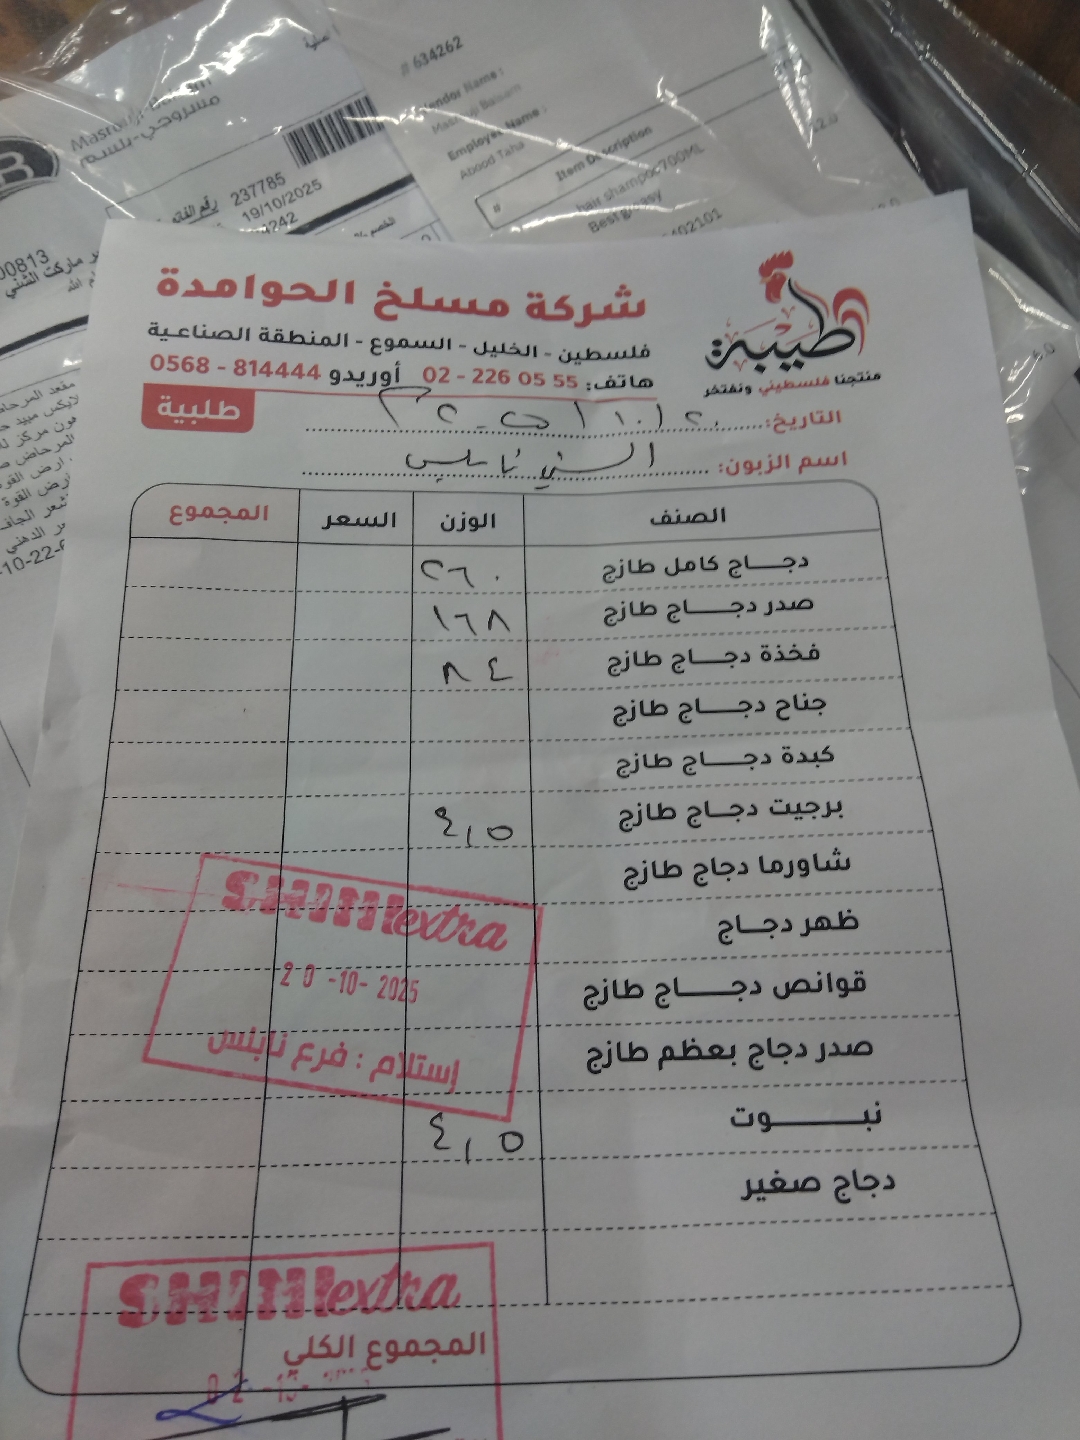 # 634262
Vendor Name :
Masrouji Balsam
Employee Name :
Abood Taha
Item Description
#
hair shampoo 700ML
مسروجي-بلسم
237785
19/10/2025
شركة مسلخ الحوامدة
فلسطين - الخليل - السموع - المنطقة الصناعية
هاتف: 02 - 226 05 55 أوريدو 0568 - 814444
طيبة
منتجنا فلسطيني ونفتخر
طلبية
التاريخ:
اسم الزبون: الشني نابلس
الصنف الوزن السعر المجموع
دجاج كامل طازج ٢٦٠
صدر دجاج طازج ١٦٨
فخذة دجاج طازج ٨٤
جناح دجاج طازج
كبدة دجاج طازج
برجيت دجاج طازج ٤,٥
شاورما دجاج طازج
ظهر دجاج
قوانص دجاج طازج
صدر دجاج بعظم طازج
نبوت ٤,٥
دجاج صغير
SHINIextra
20 -10- 2025
إستلام : فرع نابلس
SHINIextra
المجموع الكلي